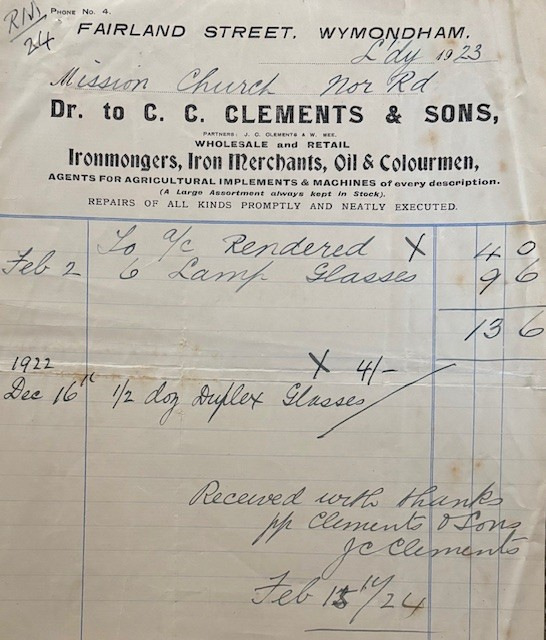 Phone No. 4.
24
FAIRLAND STREET, WYMONDHAM,
L'dy 1923
Mission Church Nor Rd
Dr. to C. C. CLEMENTS & SONS,
PARTNERS: J. C. CLEMENTS & W. BEE.
WHOLESALE and RETAIL
Ironmongers, Iron Merchants, Oil & Colourmen,
AGENTS FOR AGRICULTURAL IMPLEMENTS & MACHINES of every description.
(A Large Assortment always kept in Stock).
REPAIRS OF ALL KINDS PROMPTLY AND NEATLY EXECUTED.
To a/c Rendered X 4 0
Feb 2 6 Lamp Glasses 9 6
13 6
1922 X 4/-
Dec 16th 1/2 doz Duplex Glasses
Received with thanks
pp Clements & Sons
JC Clements
Feb 15th/24